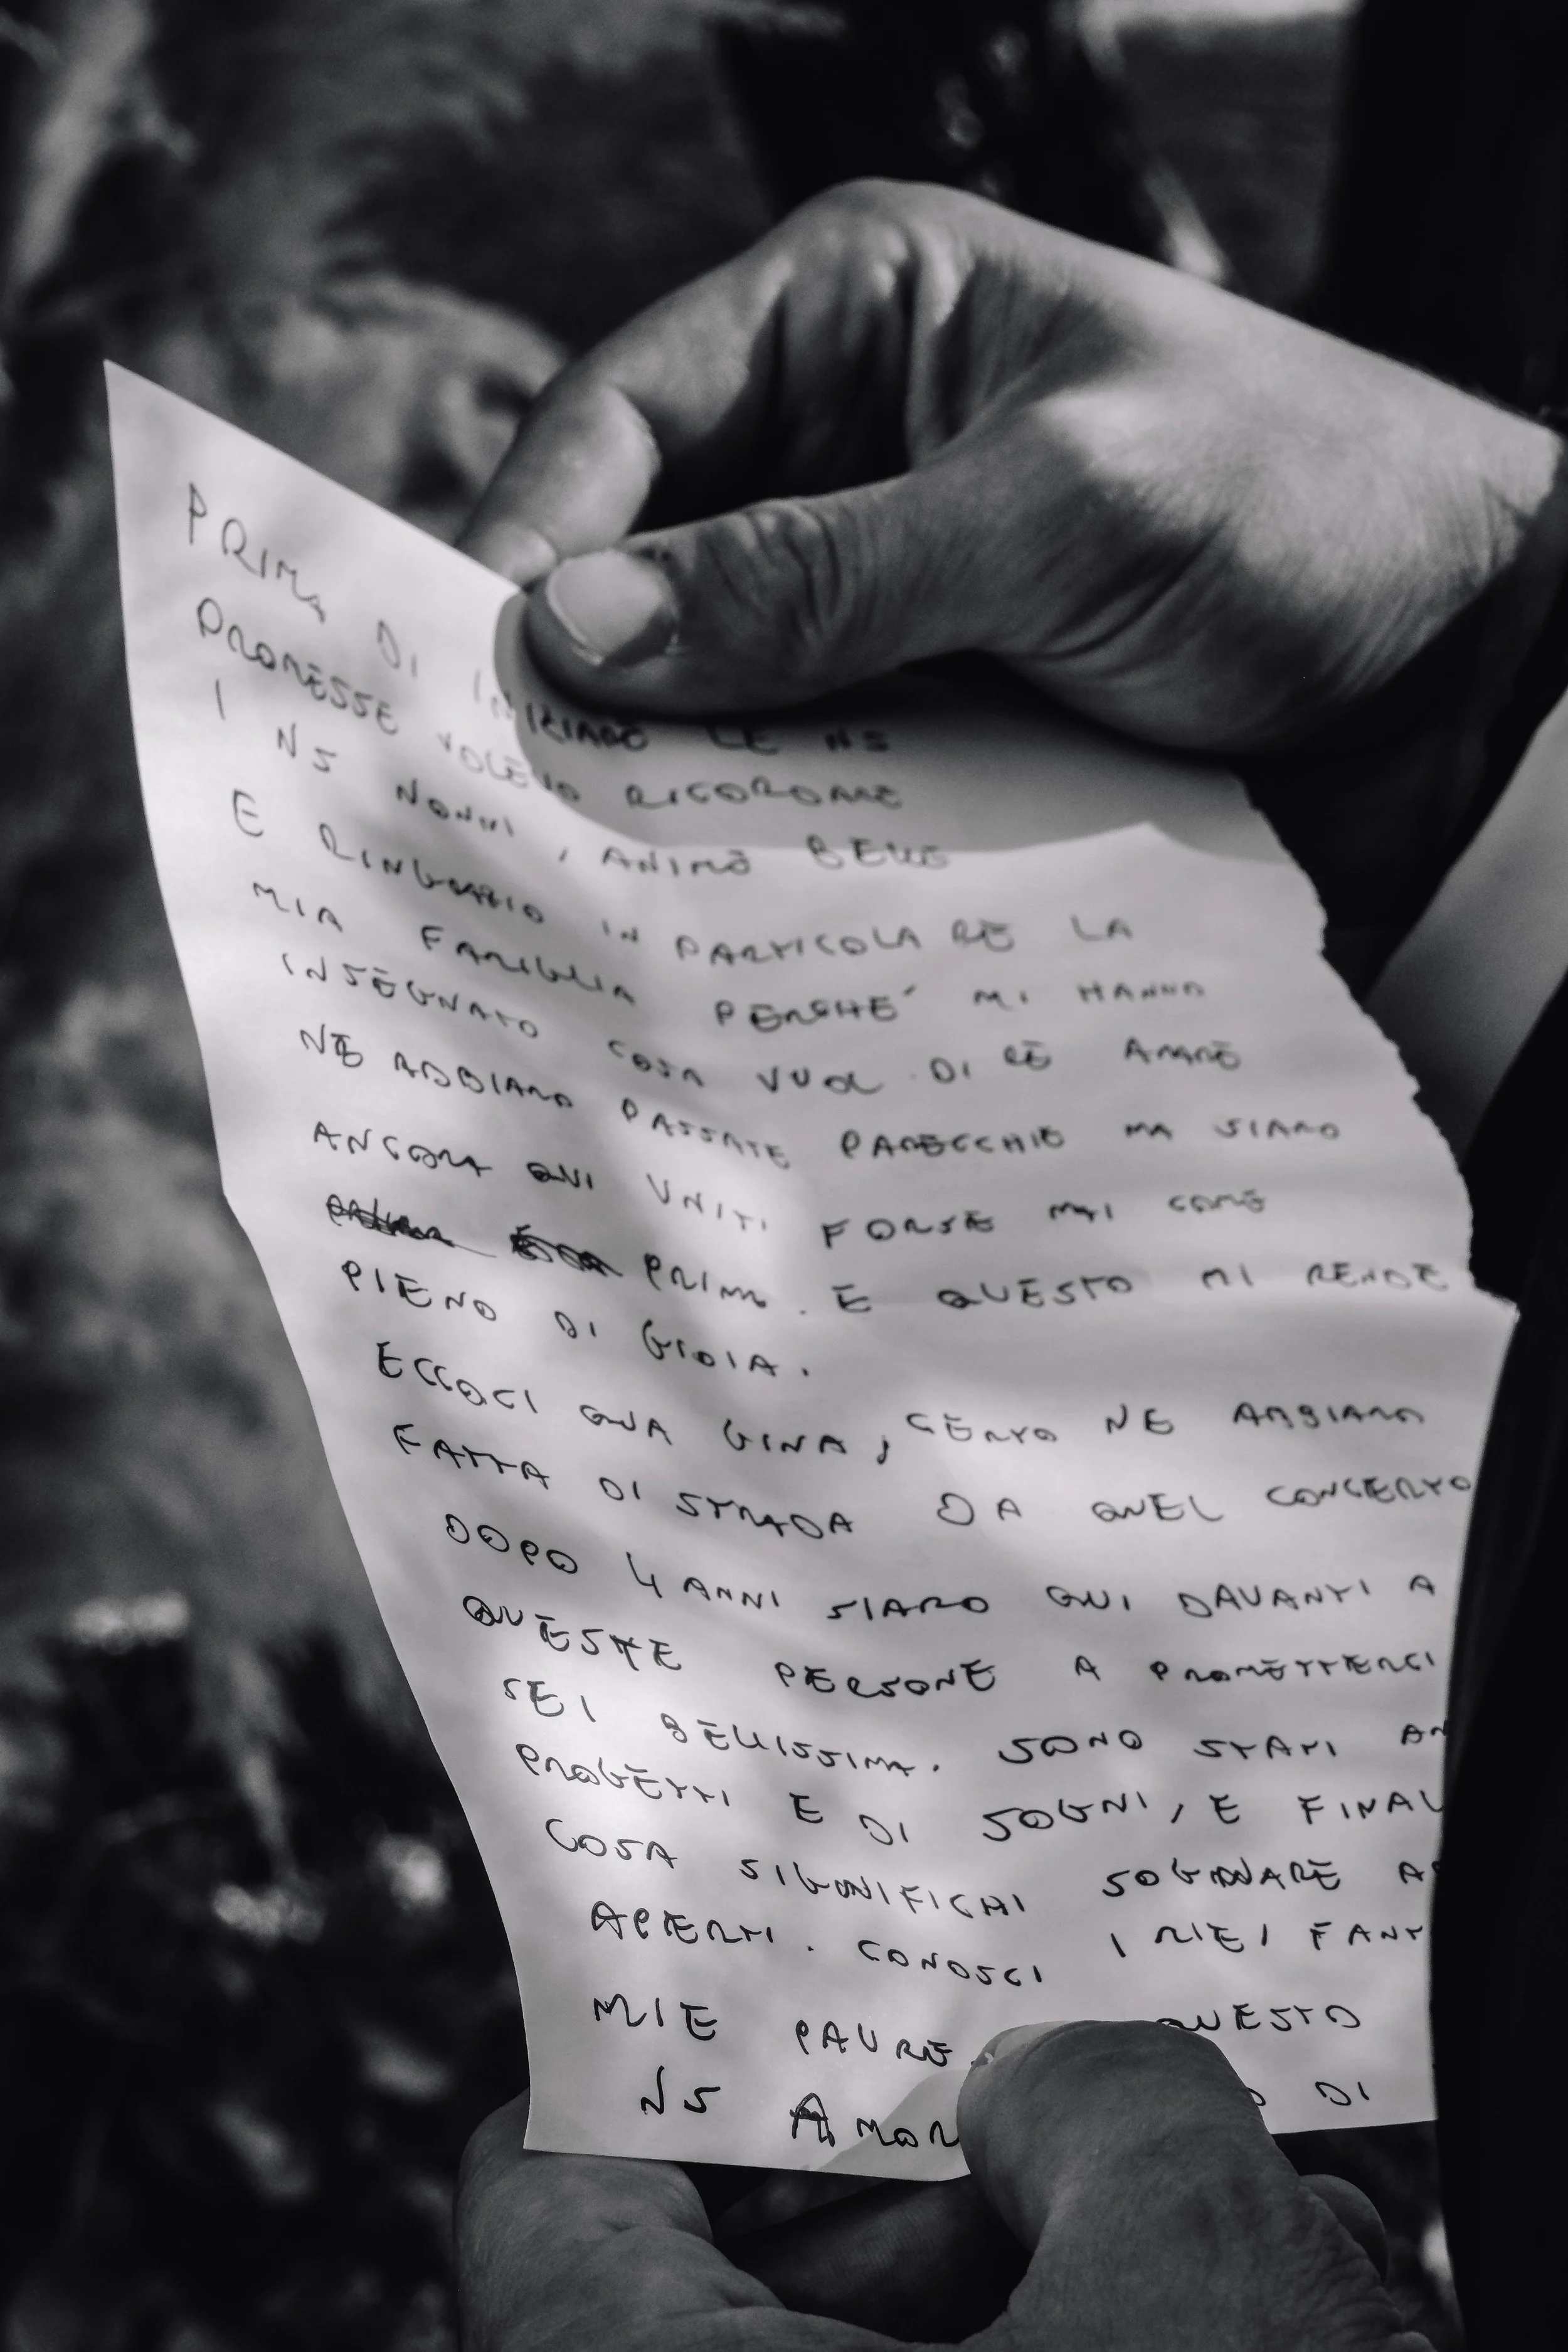 PRIMA DI INIZIARE LE NS
PROMESSE VOLEVO RICORDARE
I NS NONNI, ANIME BELLE
E RINGRAZIO IN PARTICOLARE LA
MIA FAMIGLIA PERCHE' MI HANNO
INSEGNATO COSA VUOL DIRE AMARE
NE ABBIAMO PASSATE PARECCHIE MA SIAMO
ANCORA QUI UNITI FORSE MAI COME
PRIMA. E QUESTO MI RENDE
PIENO DI GIOIA.
ECCOCI QUA GINA, CERTO NE ABBIAMO
FATTA DI STRADA DA QUEL CONCERTO
DOPO 4 ANNI SIAMO QUI DAVANTI A
QUESTE PERSONE A PROMETTERCI
SEI BELLISSIMA. SONO STATI AN
PROGETTI E DI SOGNI, E FINAL
COSA SIGNIFICHI SOGNARE A
APERTI. CONOSCI I MIEI FANT
MIE PAURE QUESTO
NS AMOR DI